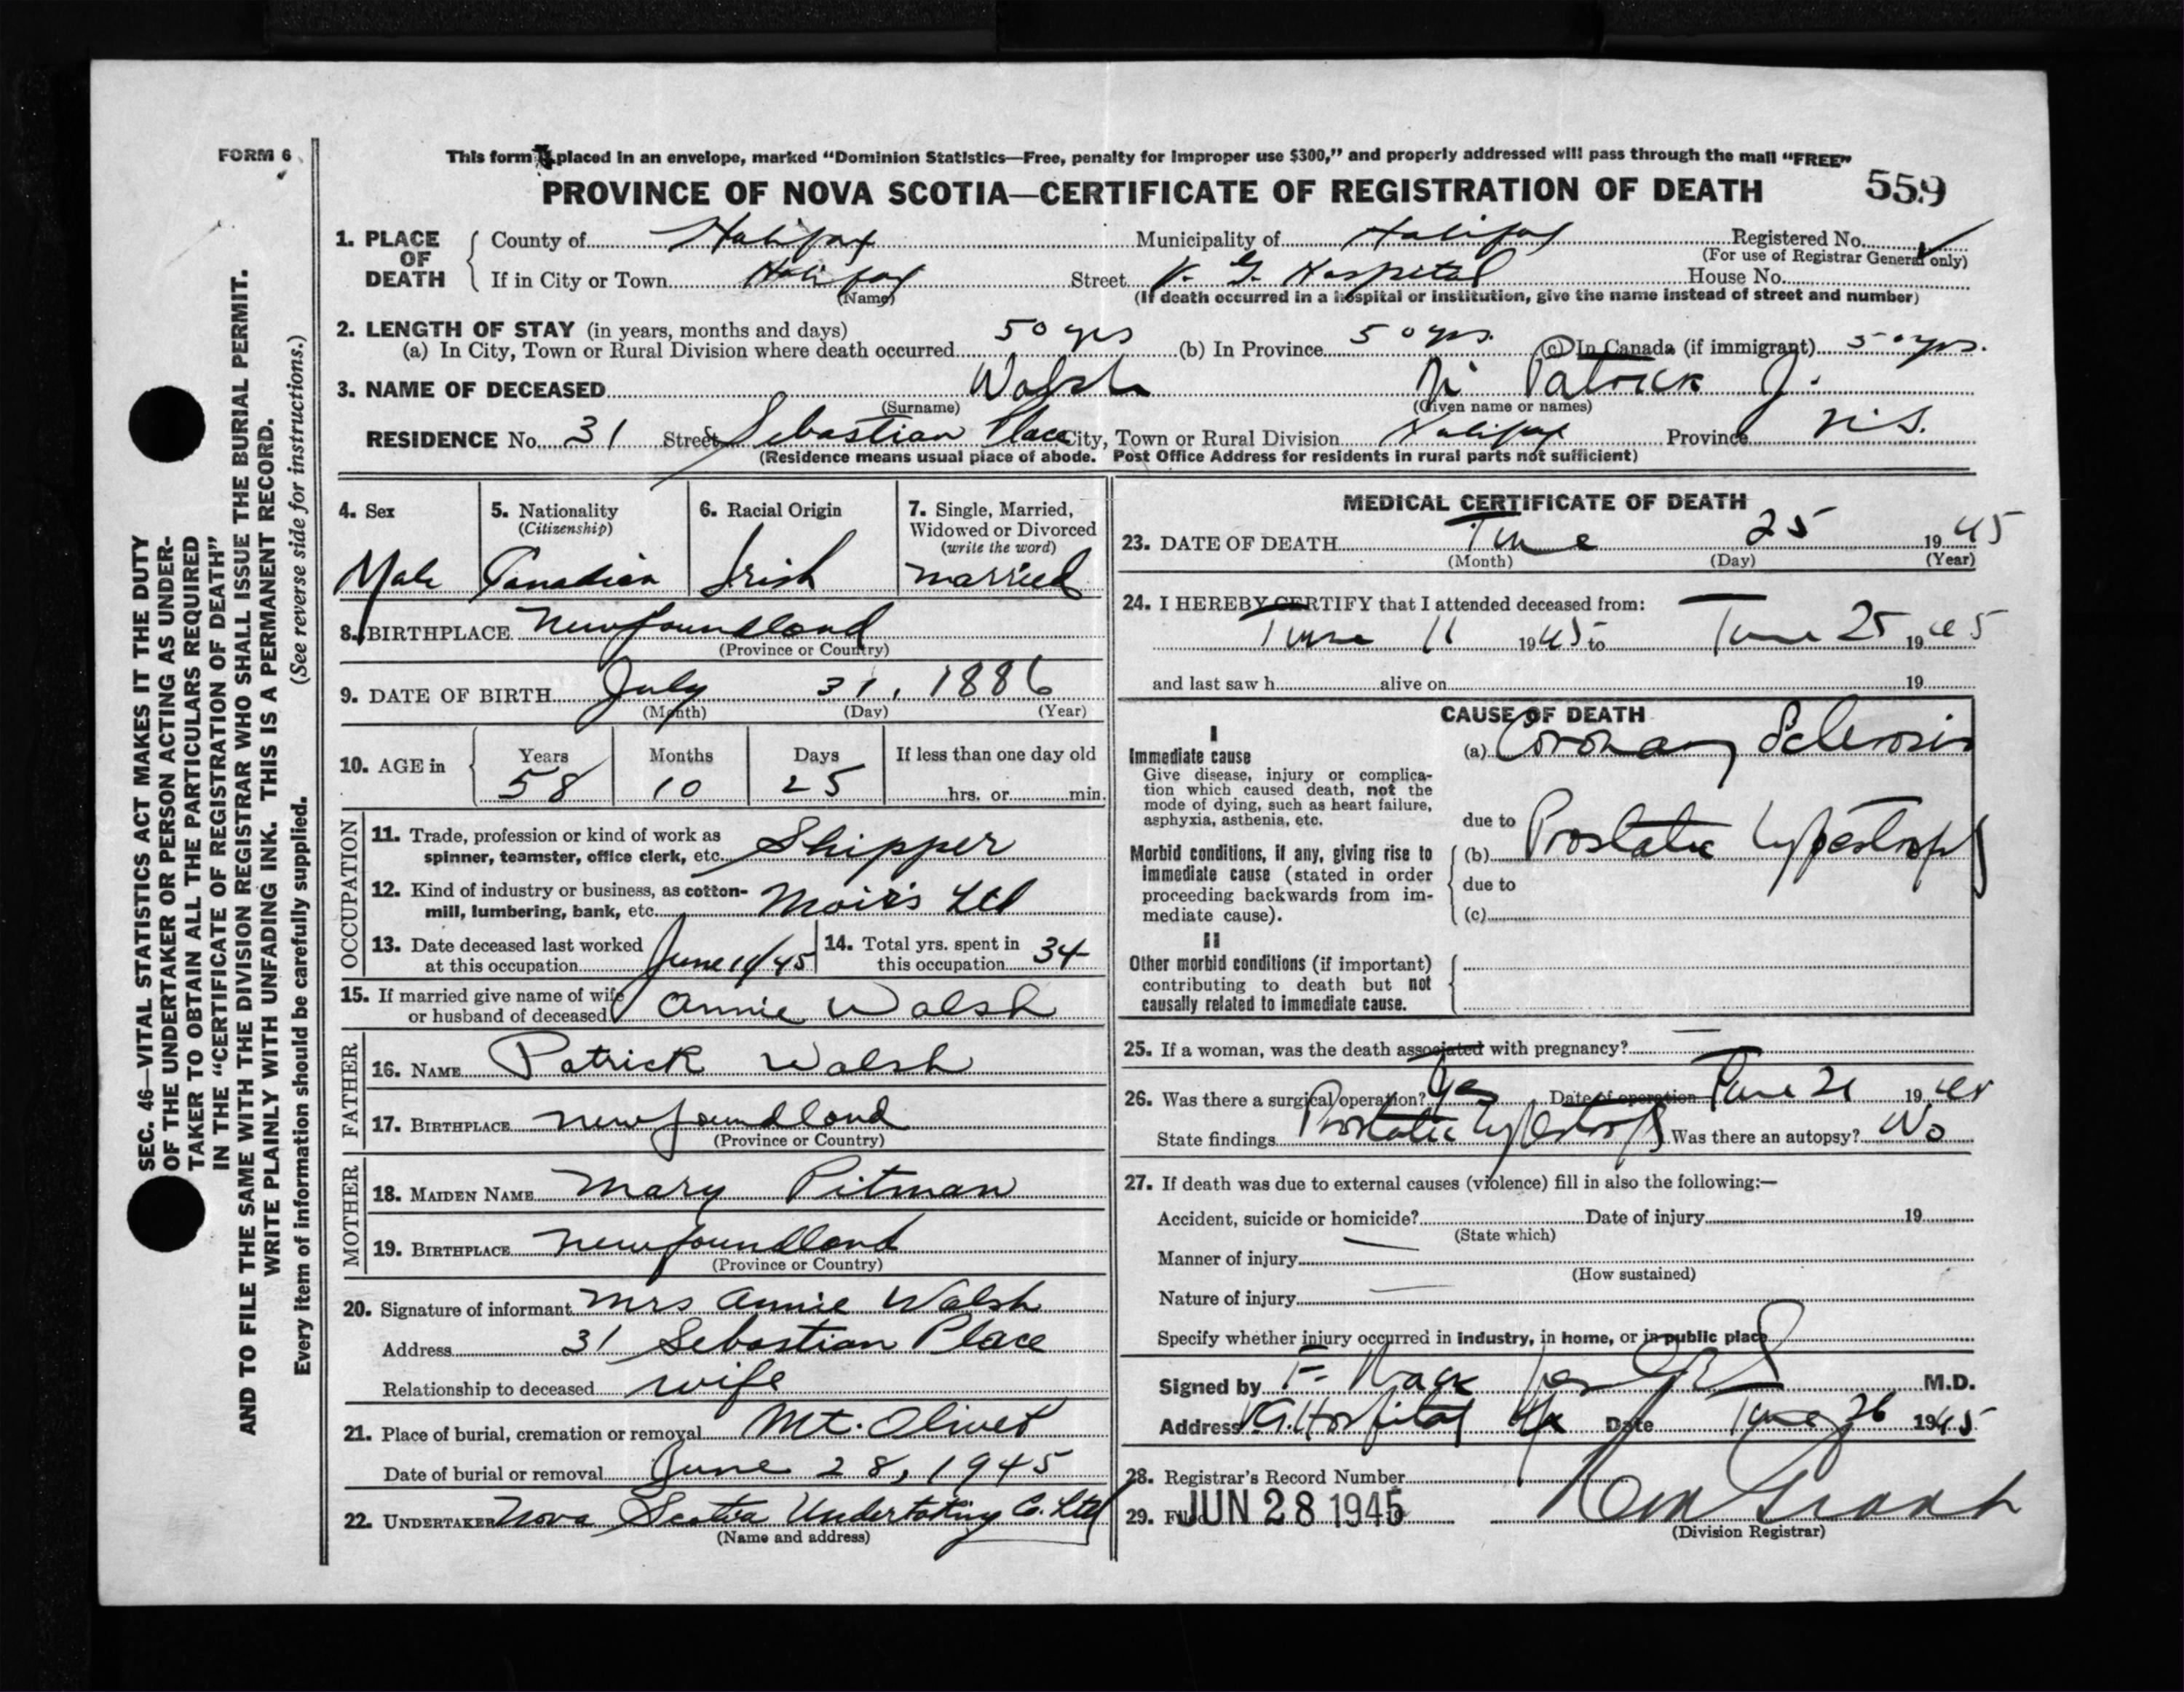 FORM 6
This form placed in an envelope, marked “Dominion Statistics—Free, penalty for improper use $300,” and properly addressed will pass through the mail “FREE”
PROVINCE OF NOVA SCOTIA—CERTIFICATE OF REGISTRATION OF DEATH 559
1. PLACE OF DEATH County of Halifax Municipality of Halifax Registered No.
(For use of Registrar General only)
If in City or Town Halifax Street V. G. Hospital House No.
(Name) (If death occurred in a hospital or institution, give the name instead of street and number)
2. LENGTH OF STAY (in years, months and days)
(a) In City, Town or Rural Division where death occurred 50 yrs (b) In Province 50 yrs. (c) In Canada (if immigrant) 50 yrs.
3. NAME OF DECEASED Walsh Patrick J.
(Surname) (Given name or names)
RESIDENCE No. 31 Street Sebastian Place City, Town or Rural Division Halifax Province N.S.
(Residence means usual place of abode. Post Office Address for residents in rural parts not sufficient)
4. Sex Male
5. Nationality (Citizenship) Canadian
6. Racial Origin Irish
7. Single, Married, Widowed or Divorced (write the word) married
8. BIRTHPLACE Newfoundland
(Province or Country)
9. DATE OF BIRTH July 31, 1886
(Month) (Day) (Year)
10. AGE in Years 58 Months 10 Days 25 If less than one day old hrs. or min.
OCCUPATION
11. Trade, profession or kind of work as
spinner, teamster, office clerk, etc. Shipper
12. Kind of industry or business, as cotton-
mill, lumbering, bank, etc. Moir's Ltd
13. Date deceased last worked
at this occupation June 11/45
14. Total yrs. spent in
this occupation 34
15. If married give name of wife
or husband of deceased Annie Walsh
FATHER
16. NAME Patrick Walsh
17. BIRTHPLACE Newfoundland
(Province or Country)
MOTHER
18. MAIDEN NAME Mary Pitman
19. BIRTHPLACE Newfoundland
(Province or Country)
20. Signature of informant Mrs Annie Walsh
Address 31 Sebastian Place
Relationship to deceased wife
21. Place of burial, cremation or removal Mt. Olivet
Date of burial or removal June 28, 1945
22. UNDERTAKER Nova Scotia Undertaking Co. Ltd
(Name and address)
MEDICAL CERTIFICATE OF DEATH
23. DATE OF DEATH June 25 1945
(Month) (Day) (Year)
24. I HEREBY CERTIFY that I attended deceased from:
June 11 1945 to June 25 1945
and last saw h alive on 19
CAUSE OF DEATH
I
Immediate cause
Give disease, injury or complica-
tion which caused death, not the
mode of dying, such as heart failure,
asphyxia, asthenia, etc.
(a) Coronary Sclerosis
due to
Morbid conditions, if any, giving rise to
immediate cause (stated in order
proceeding backwards from im-
mediate cause).
(b) Prostatic hypertrophy
due to
(c)
II
Other morbid conditions (if important)
contributing to death but not
causally related to immediate cause.
25. If a woman, was the death associated with pregnancy? —
26. Was there a surgical operation? Yes Date of operation June 21 1945
State findings Prostatic hypertrophy Was there an autopsy? No
27. If death was due to external causes (violence) fill in also the following:—
Accident, suicide or homicide? Date of injury 19
(State which)
Manner of injury
(How sustained)
Nature of injury
Specify whether injury occurred in industry, in home, or in public place
Signed by F. M.D.
Address V.G. Hospital Hfx Date June 26 1945
28. Registrar's Record Number
29. Filed JUN 28 1945
(Division Registrar)
SEC. 46—VITAL STATISTICS ACT MAKES IT THE DUTY
OF THE UNDERTAKER OR PERSON ACTING AS UNDER-
TAKER TO OBTAIN ALL THE PARTICULARS REQUIRED
IN THE “CERTIFICATE OF REGISTRATION OF DEATH”
AND TO FILE THE SAME WITH THE DIVISION REGISTRAR WHO SHALL ISSUE THE BURIAL PERMIT.
WRITE PLAINLY WITH UNFADING INK. THIS IS A PERMANENT RECORD.
Every item of information should be carefully supplied. (See reverse side for instructions.)